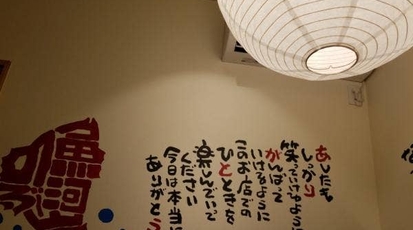 あしたも
しっかり
笑っていけるように
がんばって
いけるように
このお店での
ひとときを
楽しんでいって
ください
今日は本当に
ありがとう